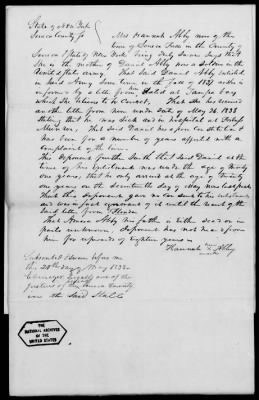 State of New York
Seneca County ss Mrs Hannah Abby now of the
town of Seneca Falls in the County of
Seneca & State of New York being duly sworn says that
she is the mother of Daniel Abby now a soldier in the
United States army. That said Daniel Abby enlisted
in said Army some time in the fall of 1837 as she is
informed by a letter from him dated at Tampa bay
which she believes to be correct. That she has received
another letter from him under date of May 26. 1838
stating that he was sick and in hospital at
That said Daniel has a poor constitution &
has been for a number of years afflicted with a
complaint of the
This deponent further saith that said Daniel at the
time of his enlistment was under the age of twenty
one years, that he only arrived at the age of twenty
one years on the seventeenth day of May was last past
That this deponent gave no to his enlistment
and was in fact ignorant of it until the receipt of the
said letter from Florida.
That Abby his father is either dead or in
parts unknown, deponent has not heard from
him for upwards of eighteen years
Hannah X Abby
mark
Subscribed & sworn before me
this day of 1838
one of the
justices of the Seneca County
and the said State
THE
NATIONAL ARCHIVES
OF THE
UNITED STATES